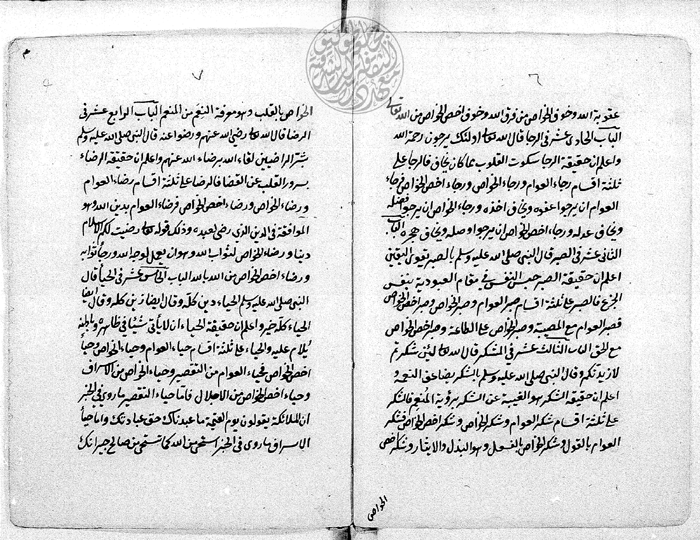 ٦
عقوبة الله وخوف الخواص من فرق الله وخوف اخص الخواص من الله تعالى
الباب الحادي عشر في الرجا قال الله تعا اولئك يرجون رحمة الله
واعلم ان حقيقة الرجا سكوت القلوب بما كان يخاف فالرجا على
ثلثة اقسام رجاء العوام ورجاء الخواص ورجاء اخص الخواص فرجاء
العوام ان يرجوا عفوه ويخاف اخذه ورجاء الخواص ان يرجوا فضله
ويخاف عدله ورجاء اخص الخواص ان يرجوا وصله ويخاف هجره الباب
الثاني عشر في الصبر قال النبي صلى الله عليه وسلم بالصبر تقوى اليقين
اعلم ان حقيقة الصبر حبس النفس في مقام العبودية بنفس
الجزع فالصبر على ثلثة اقسام صبر العوام وصبر الخواص وصبر اخص الخواص
فصبر العوام مع المصيبة وصبر الخواص على الطاعة وصبر اخص الخواص
مع الحق الباب الثالث عشر في الشكر قال الله تعا لئن شكرتم
لازيدنكم وقال النبي صلى الله عليه وسلم بالشكر يضاعف النعم و
اعلم ان حقيقة الشكر هو الغيبة عن الشكر برؤية المنعم فالشكر
على ثلثة اقسام شكر العوام وشكر الخواص وشكر اخص الخواص فشكر
العوام بالقول وشكر الخواص بالفعل وهو البذل والايثار وشكر اخص
الخواص
٧
الخواص بالقلب وهو معرفة النعم من المنعم الباب الرابع عشر في
الرضا قال الله تعا رضي الله عنهم ورضوا عنه قال النبي صلى الله عليه وسلم
الراضيين لقاء الله برضاء الله عنهم واعلم ان حقيقة الرضاء
بسرور القلب عن القضا فالرضا على ثلثة اقسام رضاء العوام
ورضاء الخواص ورضاء اخص الخواص فرضاء العوام بدين الله وهو
الموافقة في الدين الذي رضي لعبده وذلك قوله تعا رضيت لكم الاسلام
دينا ورضاء الخواص لثواب الله وهو ان يعمل لوجه الله ورجا ثوابه
ورضاء اخص الخواص من الله بالله الباب الخامس عشر في الحيا قال
النبي صلى الله عليه وسلم الحياء دين كله وقال ايضا زين كله وقال ايضا
الحياء كله خير واعلم ان حقيقة الحياء ان لا يأتي شيئا في ظاهره وباطنه
يلام عليه والحياء على ثلثة اقسام حياء العوام وحياء الخواص وحياء
اخص الخواص فحياء العوام من التقصير وحياء الخواص من الاسراف
وحياء اخص الخواص من الاجلال فاما حياء التقصير ما روي في الخبر
ان الملائكة يقولون يوم القيمة ما عبدناك حق عبادتك واما حياء
الاسراف ما روي في الخبر استحي من الله كما تستحي من صالح جيرانك